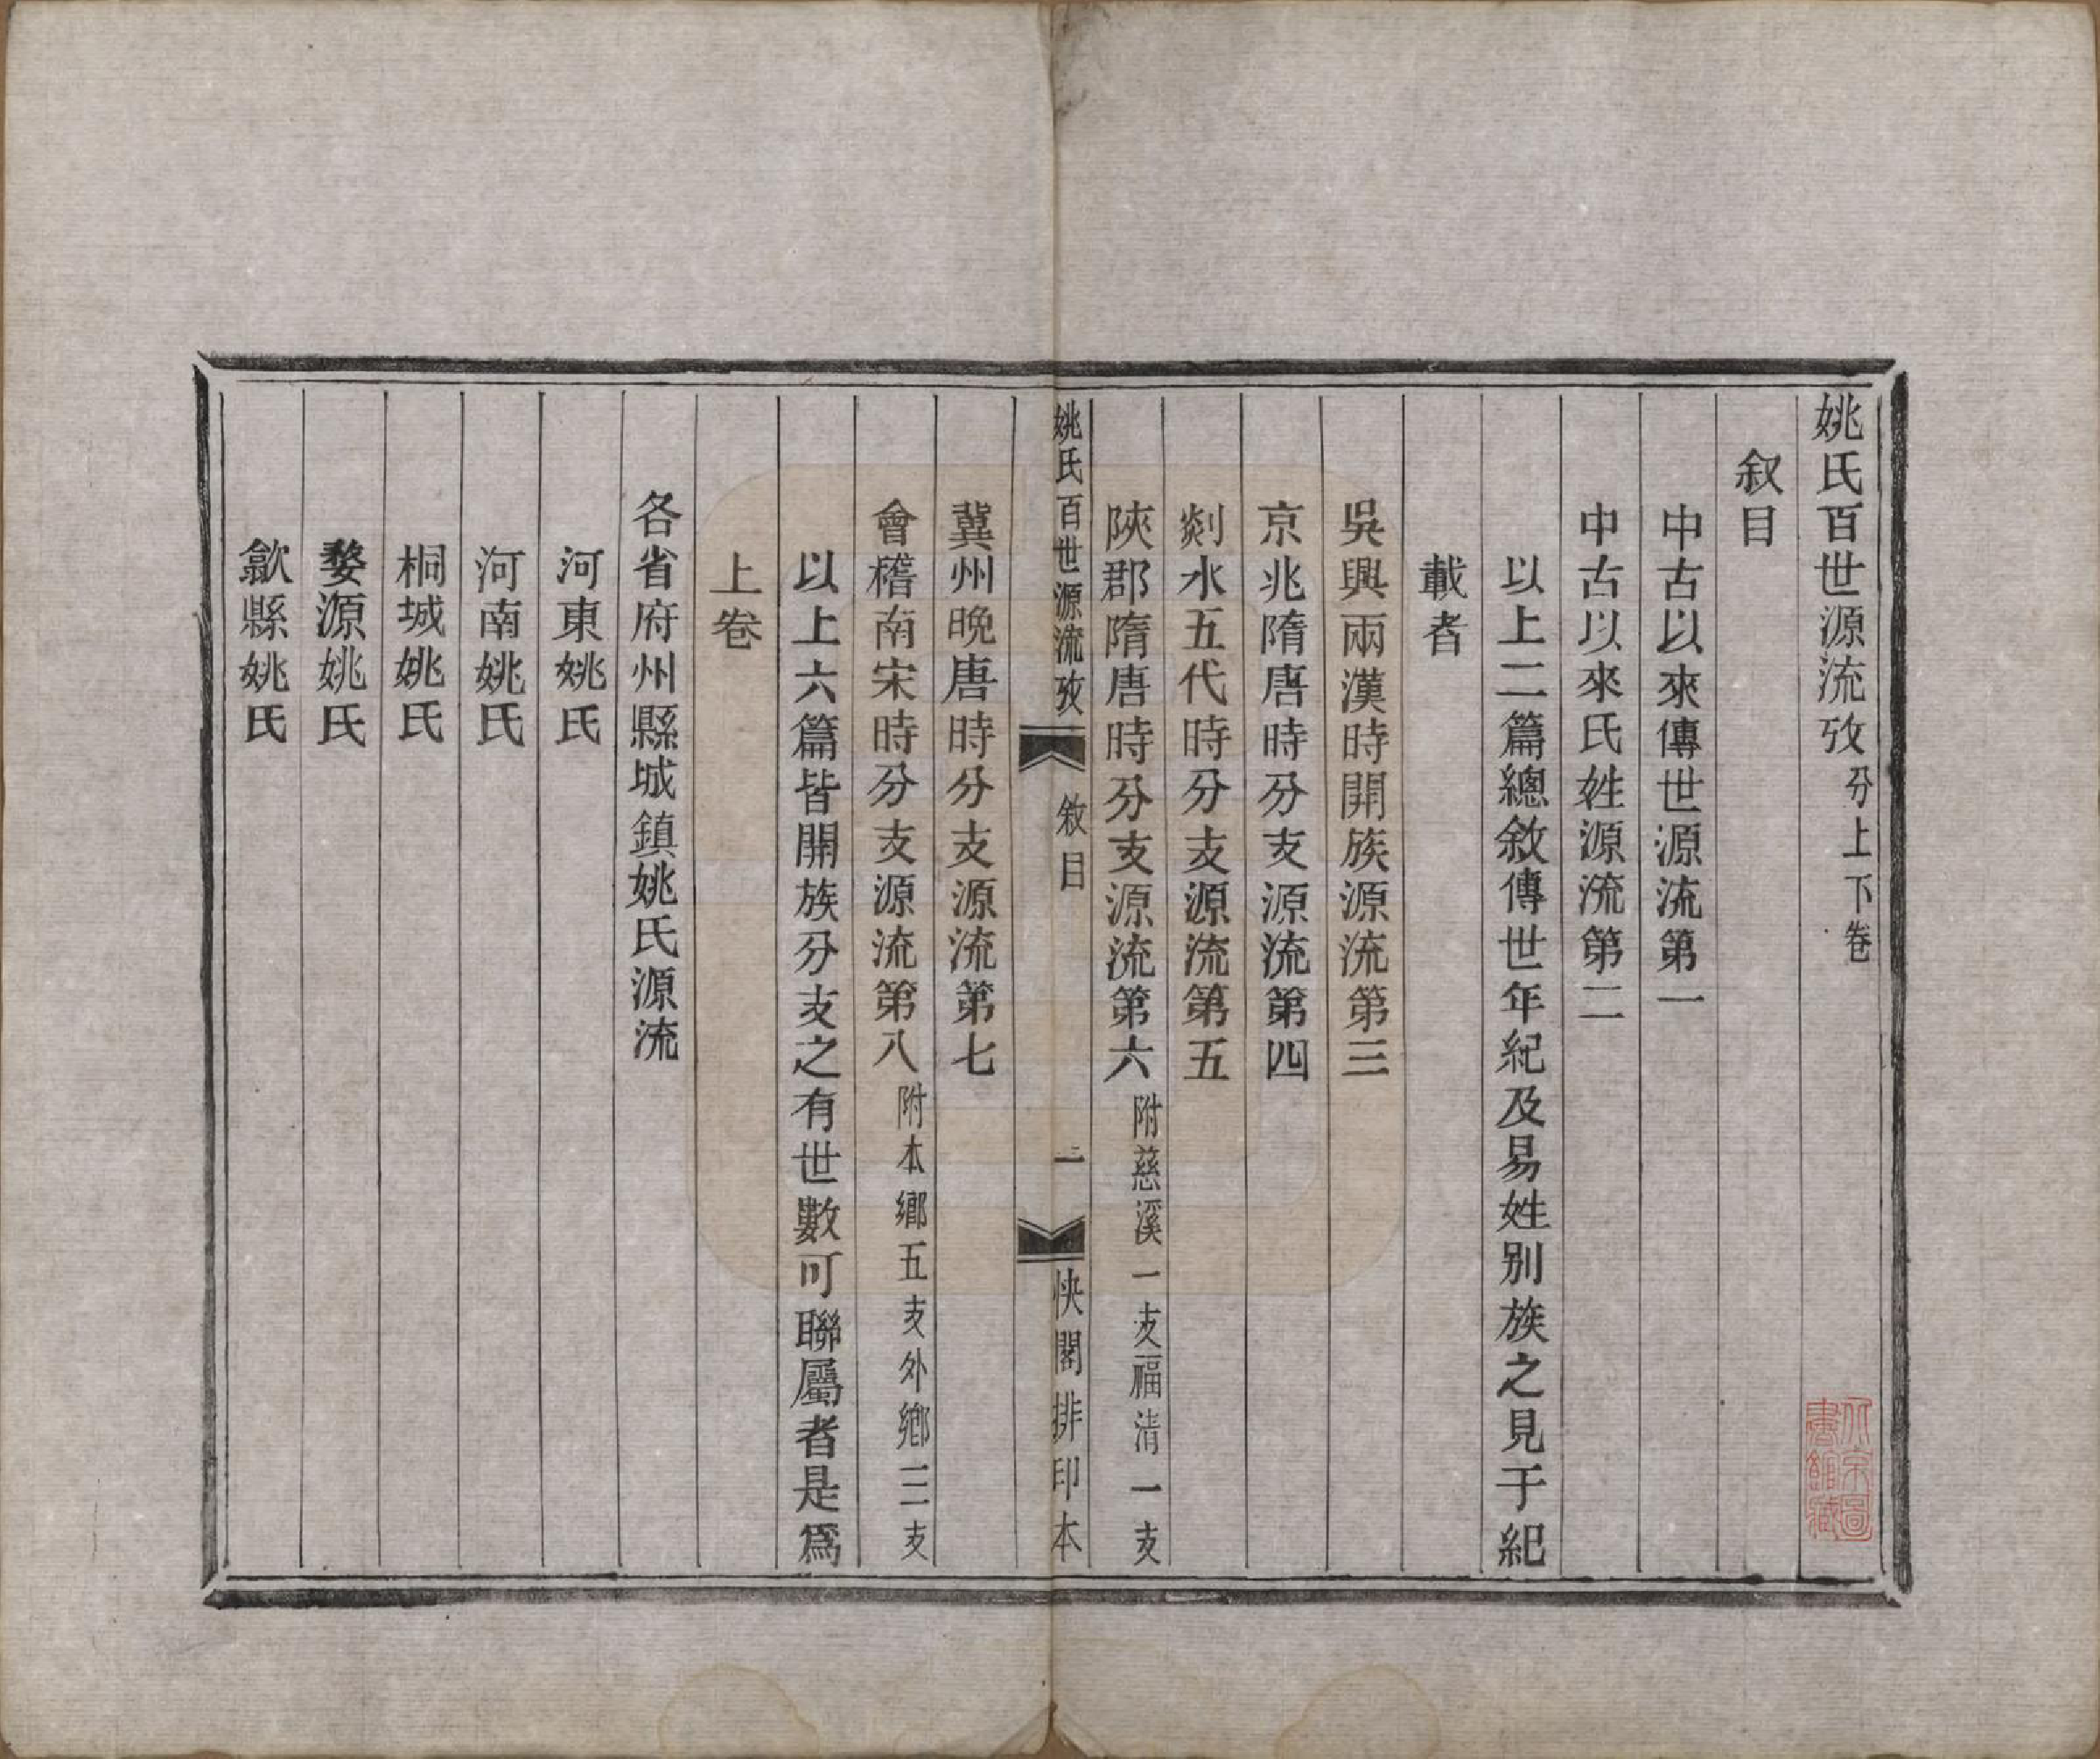 姚氏百世源流攷分上下卷
叙目
中古以來傳世源流第一
中古以來氏姓源流第二
以上二篇總敘傳世年紀及易姓别族之見于紀
載者
吳興兩漢時開族源流第三
京兆隋唐時分支源流第四
剡水五代時分支源流第五
陝郡隋唐時分支源流第六附慈溪一支福清一支
姚氏百世源流攷
敘目
一
快閣排印本
冀州晚唐時分支源流第七
會稽南宋時分支源流第八附本鄉五支外鄉三支
以上六篇皆開族分支之有世數可聯屬者是爲
上卷
各省府州縣城鎮姚氏源流
河東姚氏
河南姚氏
桐城姚氏
婺源姚氏
歙縣姚氏
北京圖
書館藏